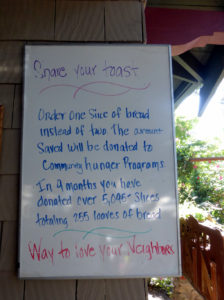 Share your toast
Order one slice of bread
instead of two. The amount
Saved will be donated to
Community hunger Programs.
In 9 months you have
donated over 5,095+ Slices
totaling 255 loaves of bread
Way to love your Neighbors